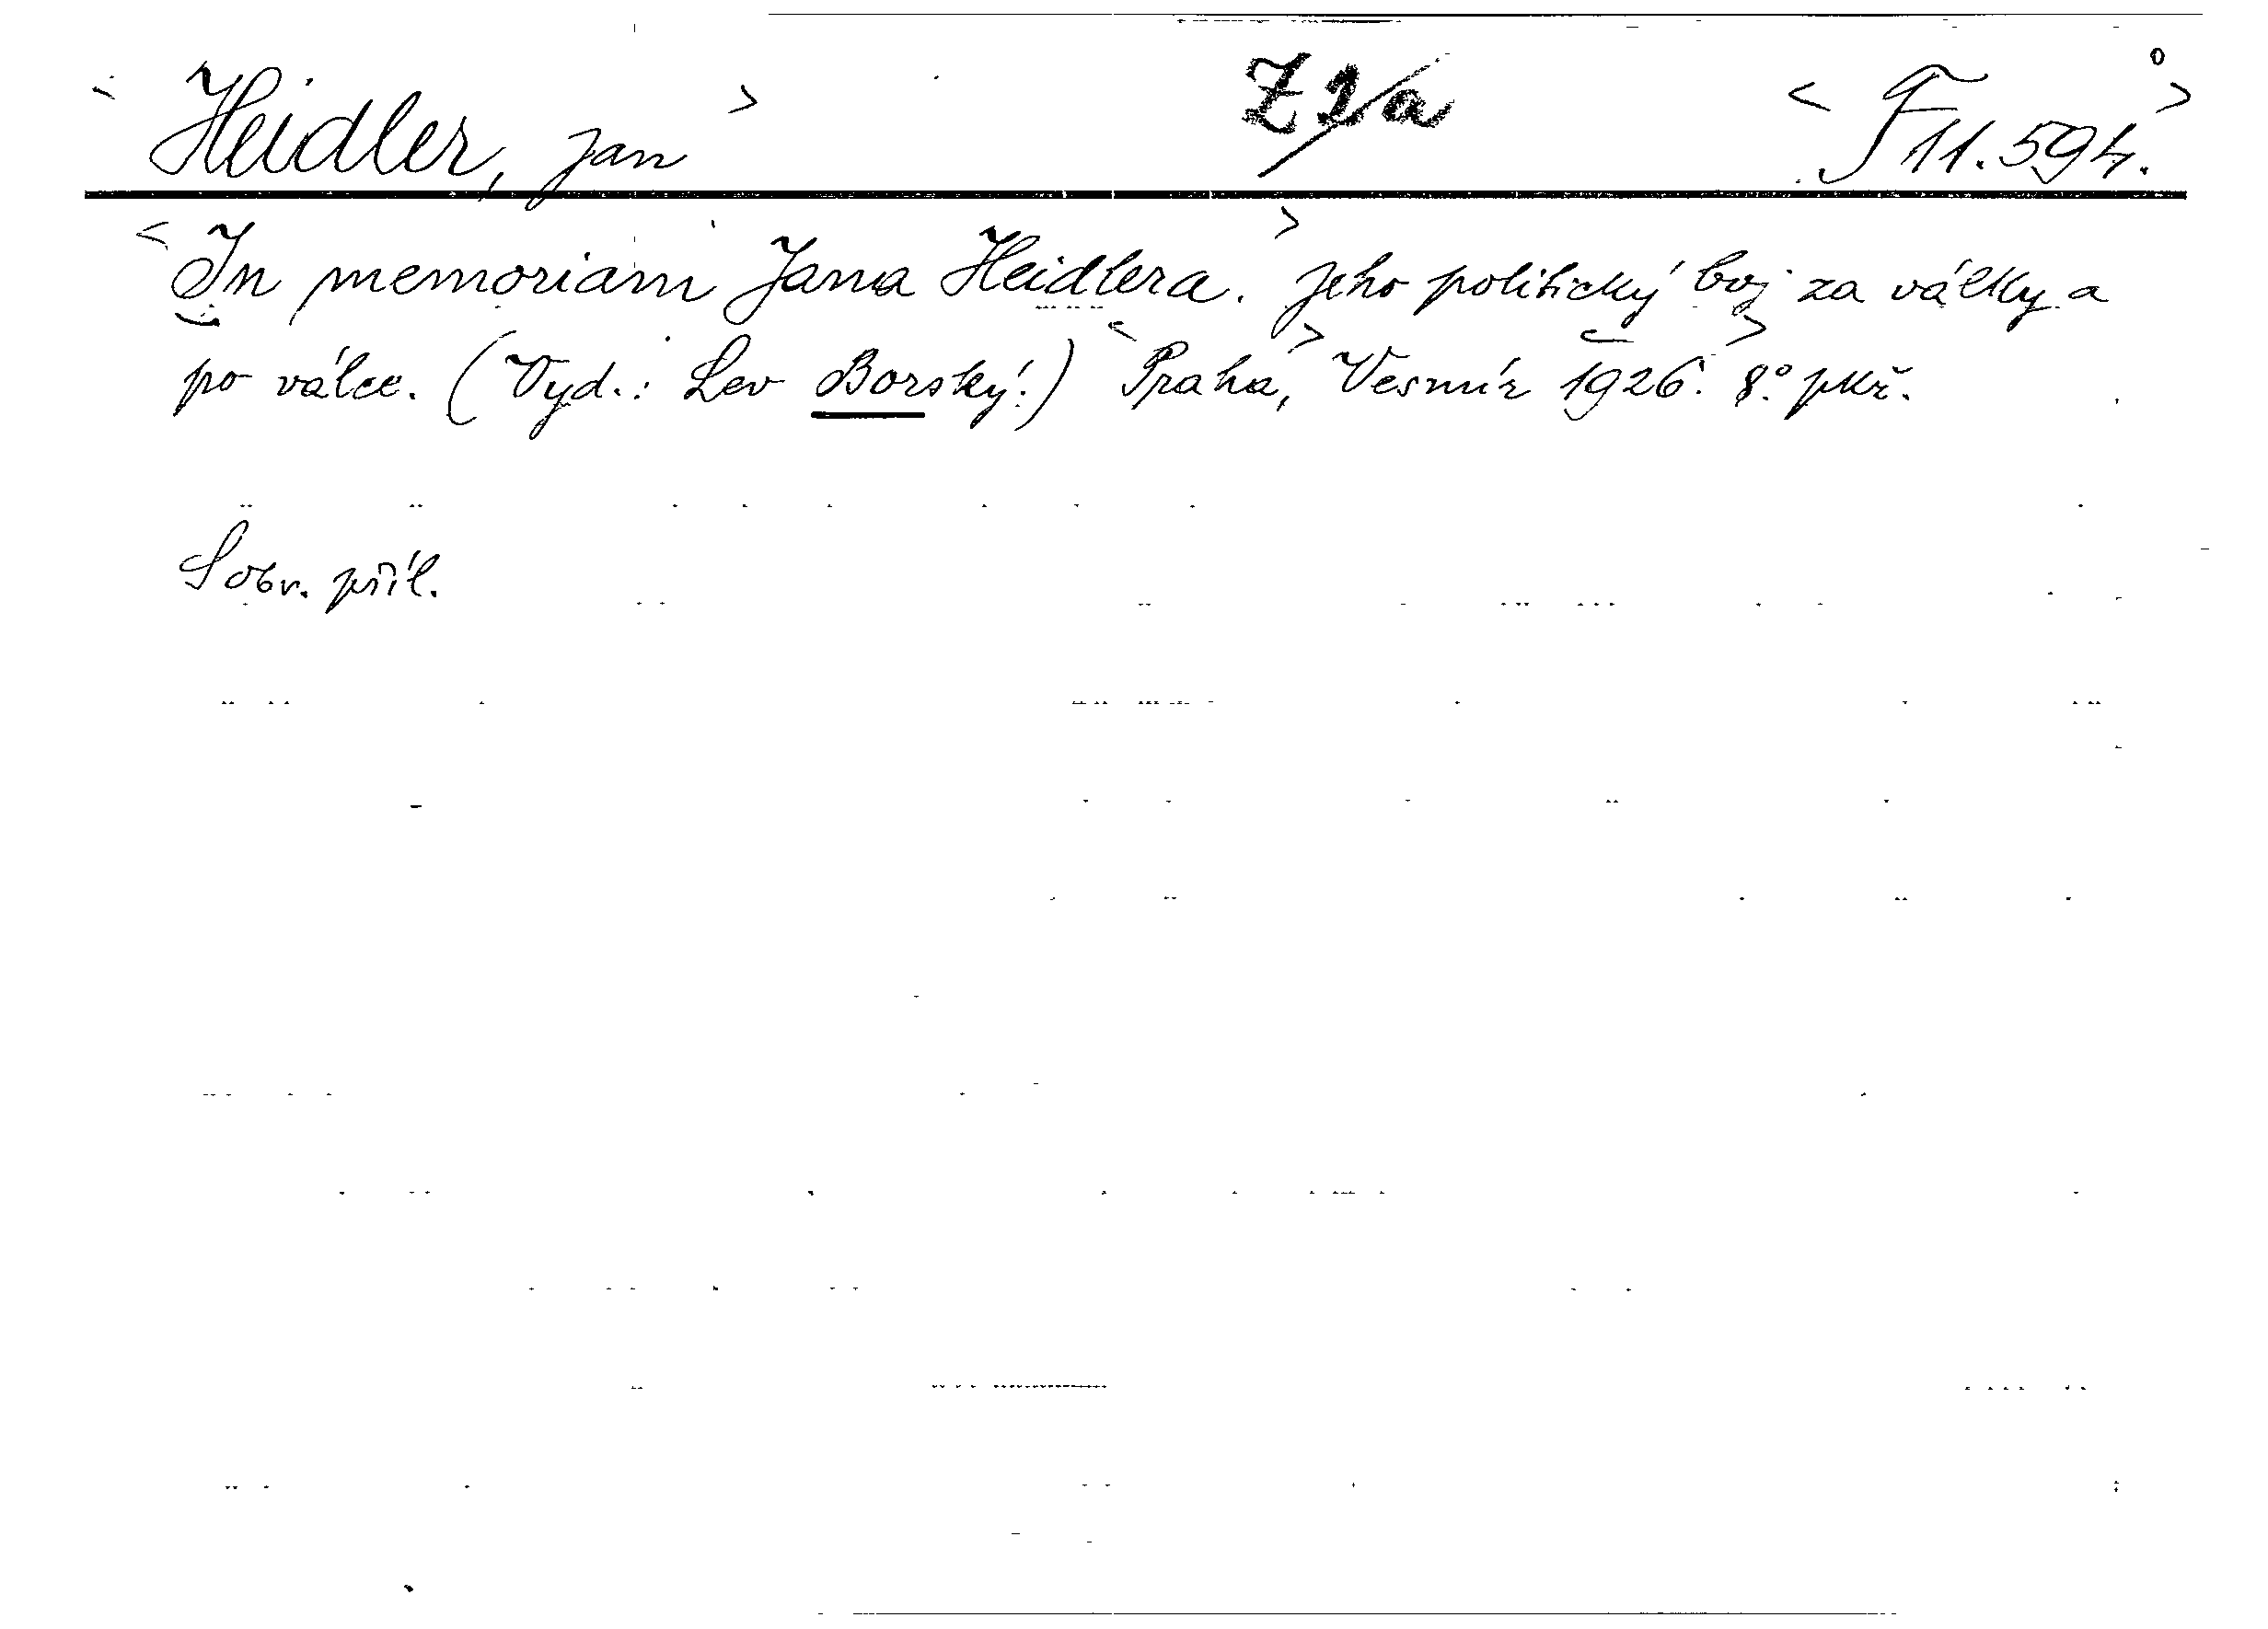 <Heidler, Jan> Z 2/a <F 11.594.>
<In memoriam Jana Heidlera.> Jeho politický boj za války a
po válce. (Vyd.: Lev Borský.) <Praha,> Vesmír <1926.> 8° pkř.
S obr. příl.